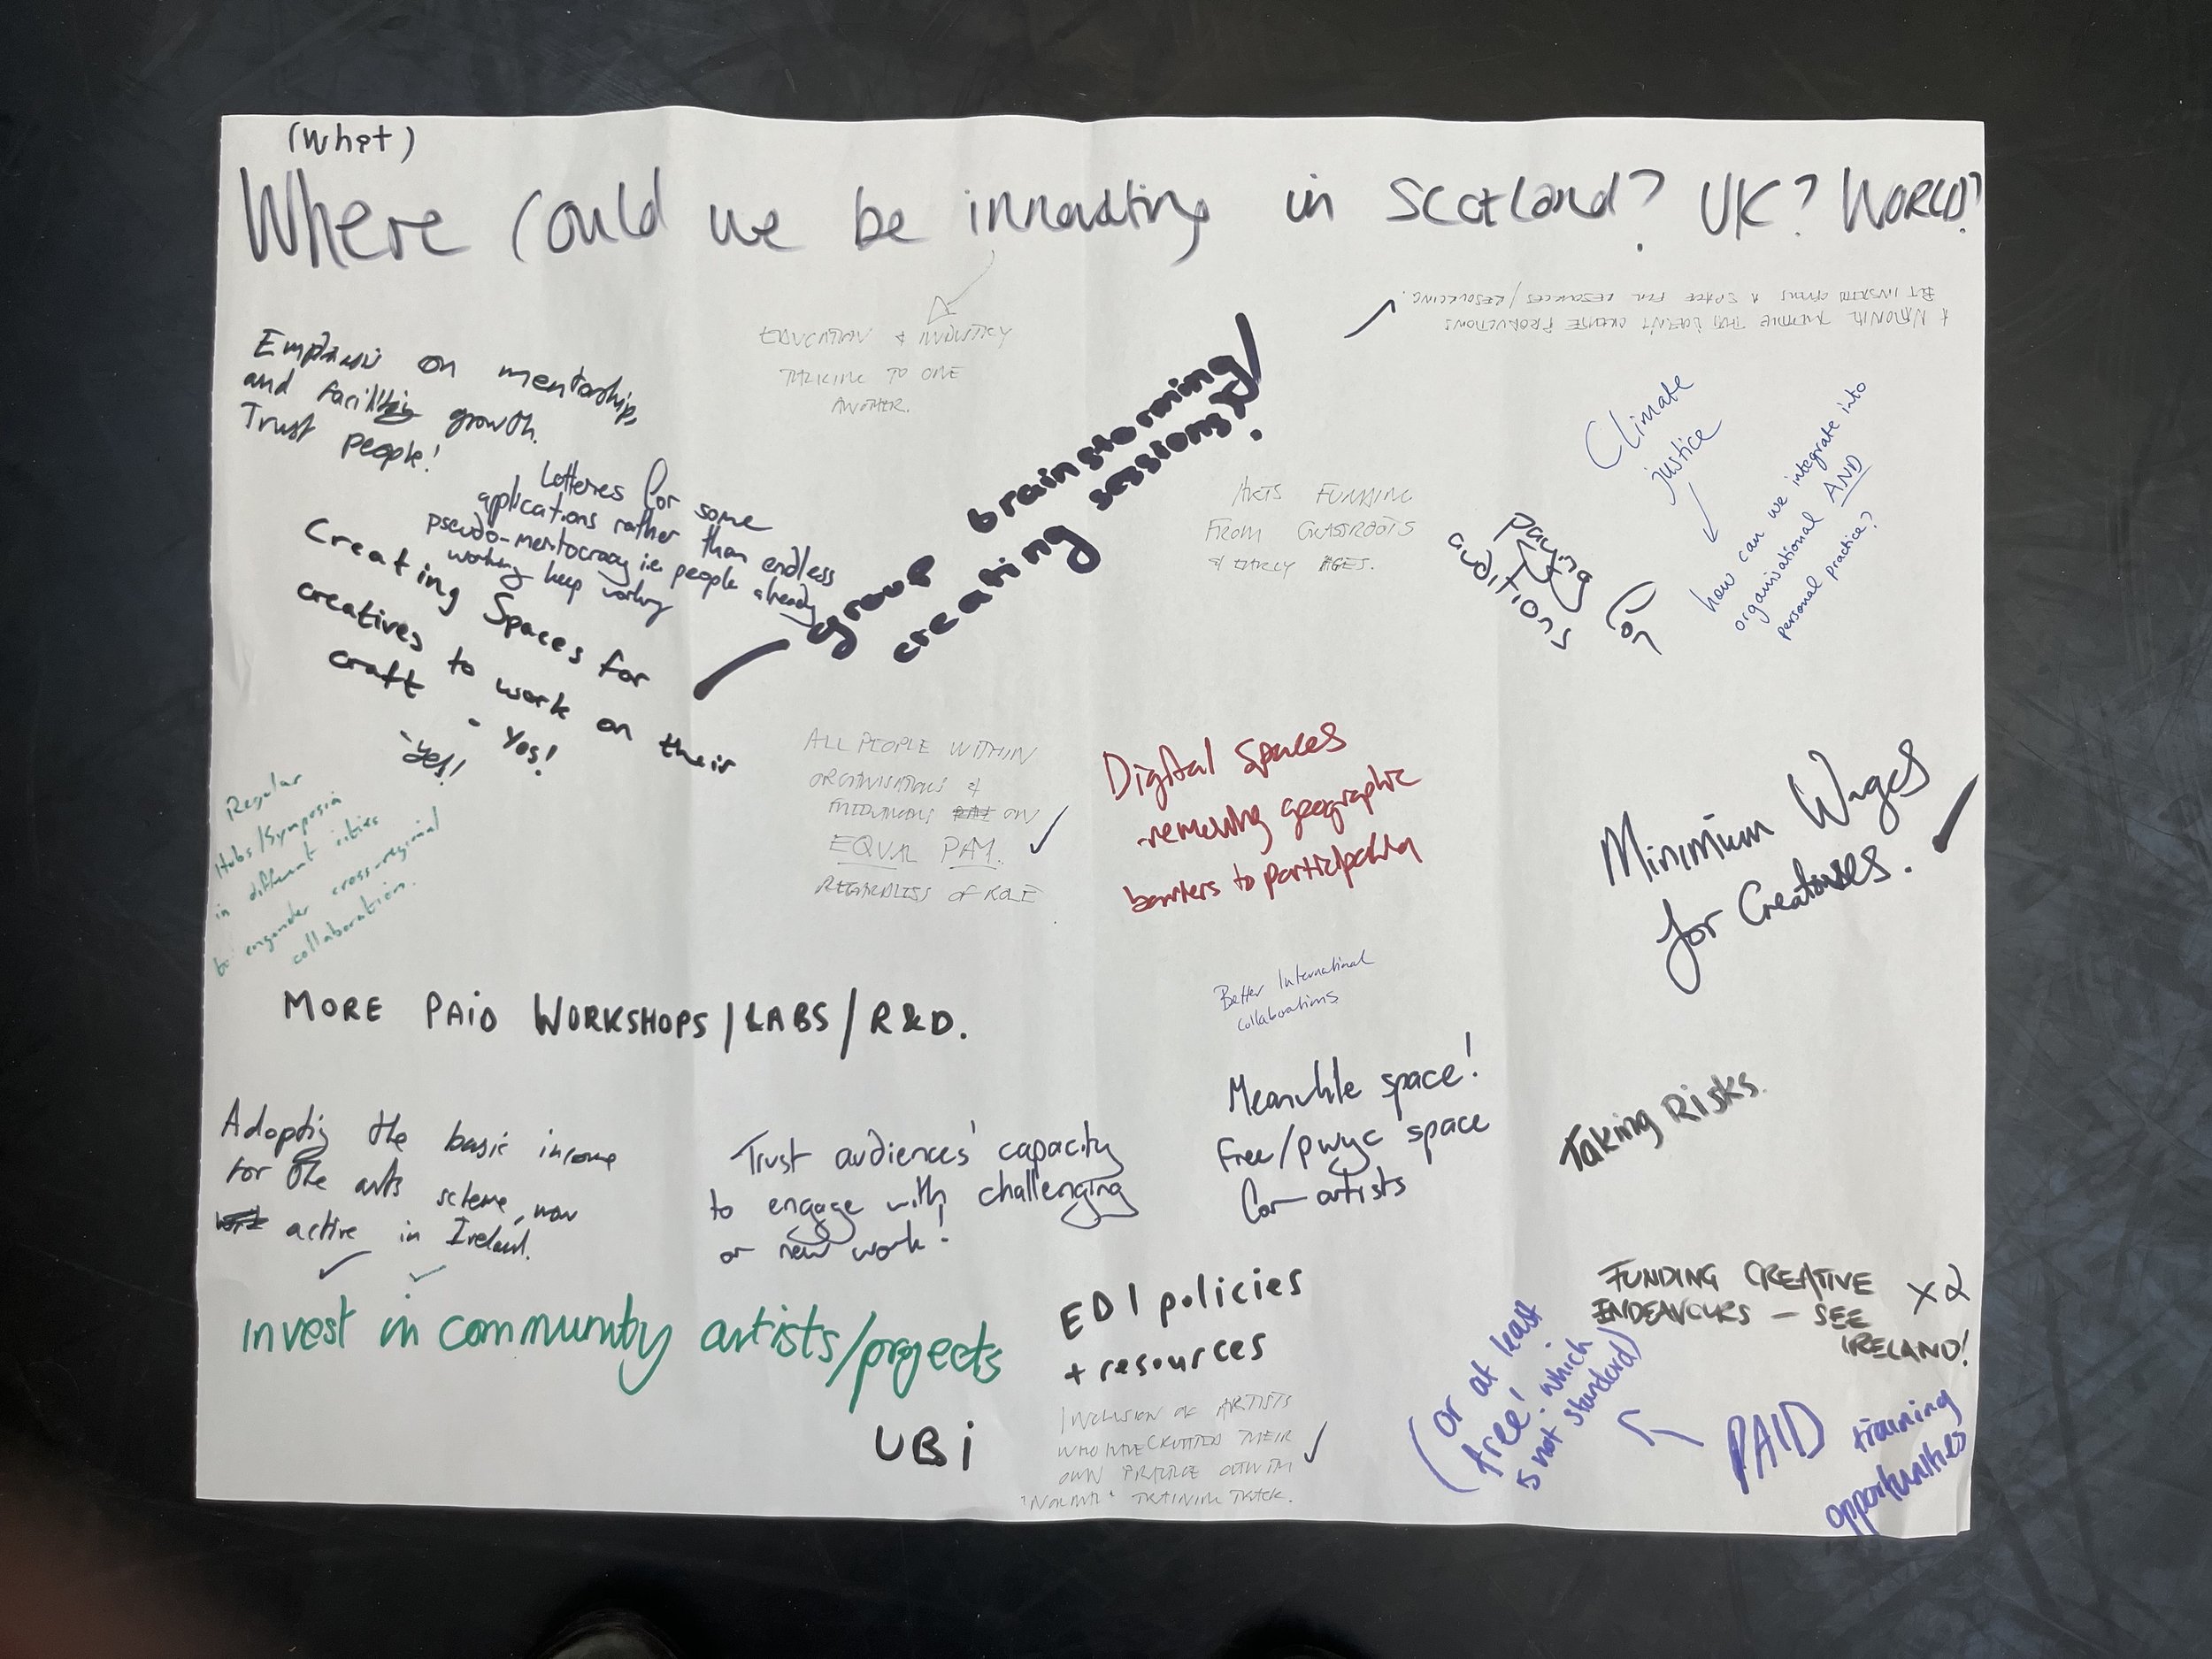 (What)
Where could we be innovating in Scotland? UK? WORLD?
EDUCATION & INDUSTRY
TALKING TO ONE
ANOTHER.
A NATIONAL THEATRE THAT DOESN'T CREATE PRODUCTIONS
BUT INSTEAD OFFERS A SPACE FOR RESOURCES / RESOURCING.
Emphasis on mentorship,
and facility growth.
Trust people!
Lotteries for some
applications rather than endless
pseudo-meritocracy i.e. people already
working keep working
group brainstorming/
creating sessions!
ARTS FUNDING
FROM GRASSROOTS
& EARLY AGES.
Climate
justice
how can we integrate into
organisational AND
personal practice?
Paying
for
auditions
Creating Spaces for
creatives to work on their
craft - Yes!
- yes!
Regular
Hubs/Symposia
in different cities
to engender cross-regional
collaboration.
ALL PEOPLE WITHIN
ORGANISATIONS &
ON
EQUAL PAY.
REGARDLESS OF ROLE
Digital Spaces
-removing geographic
barriers to participation
Minimium Wages
for Creatives.
MORE PAID WORKSHOPS/LABS/R&D.
Better International
collaborations
Meanwhile space!
Free/pwyc space
for artists
Taking Risks.
Adopting the basic income
for the arts scheme, now
active in Ireland.
Trust audiences' capacity
to engage with challenging
or new work!
Invest in community artists/projects
EDI policies
+ resources
FUNDING CREATIVE x2
ENDEAVOURS - SEE
IRELAND!
UBi
INCLUSION OF ARTISTS
WHO HAVE CRAFTED THEIR
OWN PRACTICE OUTWITH
"NORMAL" TRAINING TRACK.
(or at least
free! which
is not standard)
PAID training
opportunities